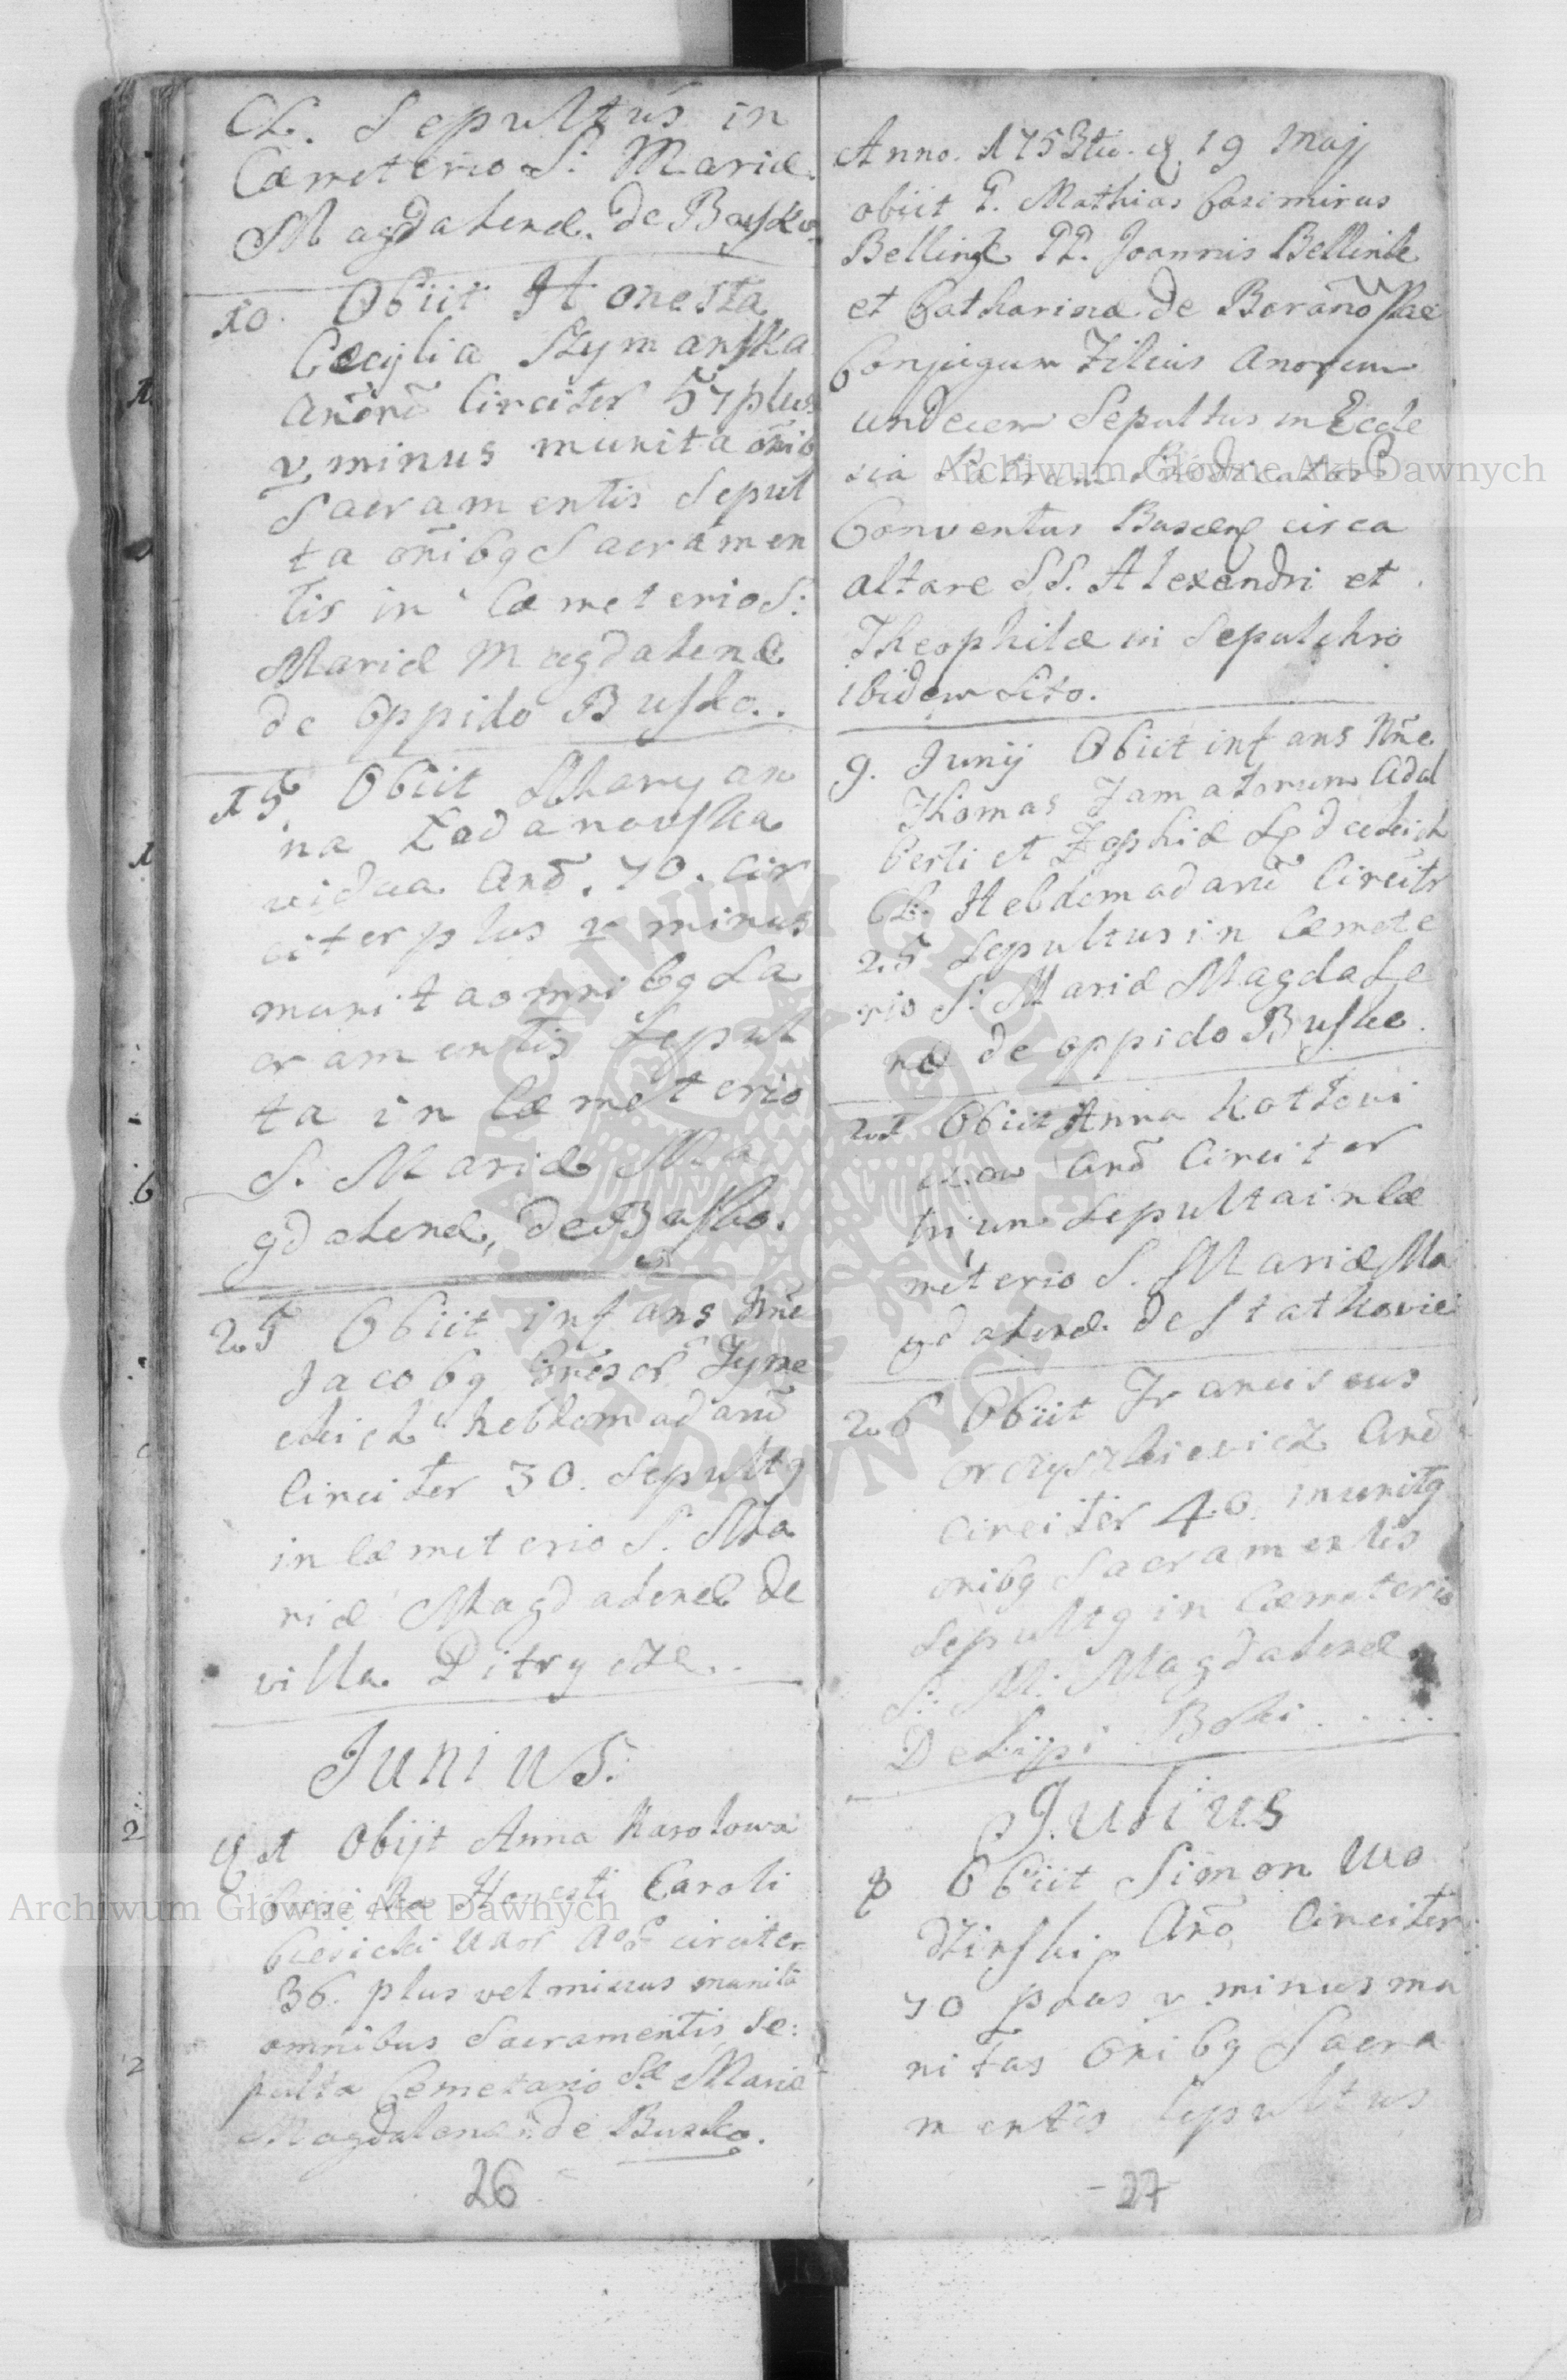 CL. Sepultus in
Cæmeterio S. Mariæ
Magdalenæ. de Busko
10. Obiit Honesta
Cæcylia Szymanska
Anorũ Circiter 57 plus
v. minus munita õnib
Sacramentis Sepul
ta onibq Sacramen
tis in Cæmeterio S:
Mariæ Magdalenæ
de Oppido Busko..
15 Obiit Maryan
na Ładanowska
vidua Anõ. 70. cir
citer plus v minus
munita omnibq Sa
cramentis Sepul
ta in Cæmeterio
S. Mariæ Ma
gdalenæ, de Busko.
25 Obiit infans Nne
Jacobq
hebdomad anũ
Circiter 30. Sepultq
in Cæmeterio S. Ma
riæ Magdalenæ de
villa Ditrycze..
Junius.
1 Obijt Anna Karolowa
Honesti Caroli
Uxor circiter
36. plus vel minus munita
omnibus Sacramentis Se:
pulta Cemetario Sæ Mariæ
Magdalenæ de Busko.
26
Anno. 1753tio. 19 Maij
obiit P. Mathias Casimirus
Bellink PP. Joannis Bellink
et Catharinæ de
Conjugum Filius Anorum
undecem Sepultus in Eccle
sia Patrum Prædicator
Conventus Buscen circa
altare SS. Alexandri et
Theophilæ in Sepulchro
ibidem Sito.
9. Junij Obiit infans Nne
Thomas Famatorum Adal
berti et Zophiæ
CL. Hebdomad anũ Circitr
25 Sepultus in Cæmete
rio S: Mariæ Magdale
næ de oppido Busko.
21 Obiit Anna Kotłowi
czow Anõ Circiter
trium Sepulta in Cæ
meterio S. Mariæ Ma
gdalenæ de
26 Obiit Franciscus
Anõ
Circiter 40. munitq
onibq Sacramentis
Sepultq in Cæmeterio
S: M: Magdalenæ.
De
Julius
8 Obiit Simon Wo
dzinski Anõ Circiter
70 plus v minus mu
nitus Onibq Sacra
mentis Sepultus
27
Archiwum Główne Akt Dawnych
Archiwum Główne Akt Dawnych
ARCHIWUM GŁÓWNE AKT DAWNYCH